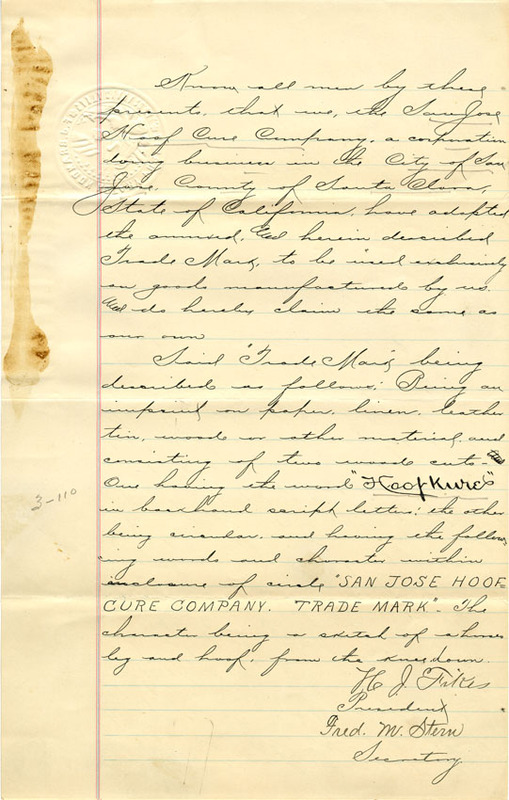 Know all men by these
presents, that we, the San Jose
Hoof Cure Company, a corporation
doing business in the City of San
Jose, County of Santa Clara,
State of California, have adopted
the annexed, and herein described
Trade Mark, to be used exclusively
on goods manufactured by us.
And do hereby claim the same as
our own
Said "Trade Mark" being
described as follows: Being an
imprint on paper, linen, leather
tin, wood or other material, and
consisting of two wood cuts-
One having the word "HoofKure"
in backhand script letter; the other
being circular, and having the follow-
ing words and character within
enclosure of circle "SAN JOSE HOOF
CURE COMPANY. "TRADE MARK". The
character being a sketch of a horses
leg and hoof, from the knee down.
3-110
H. J. Fikes
President
Fred. M. Stern
Secretary